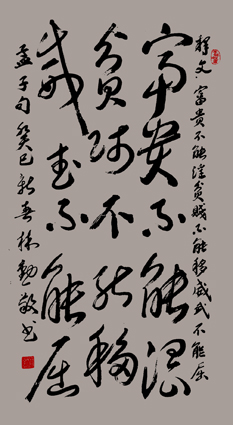 释文 富貴不能淫貧賤不能移威武不能屈
富貴不能淫
貧賤不能移
威武不能屈
孟子句癸巳新春林勤敬书